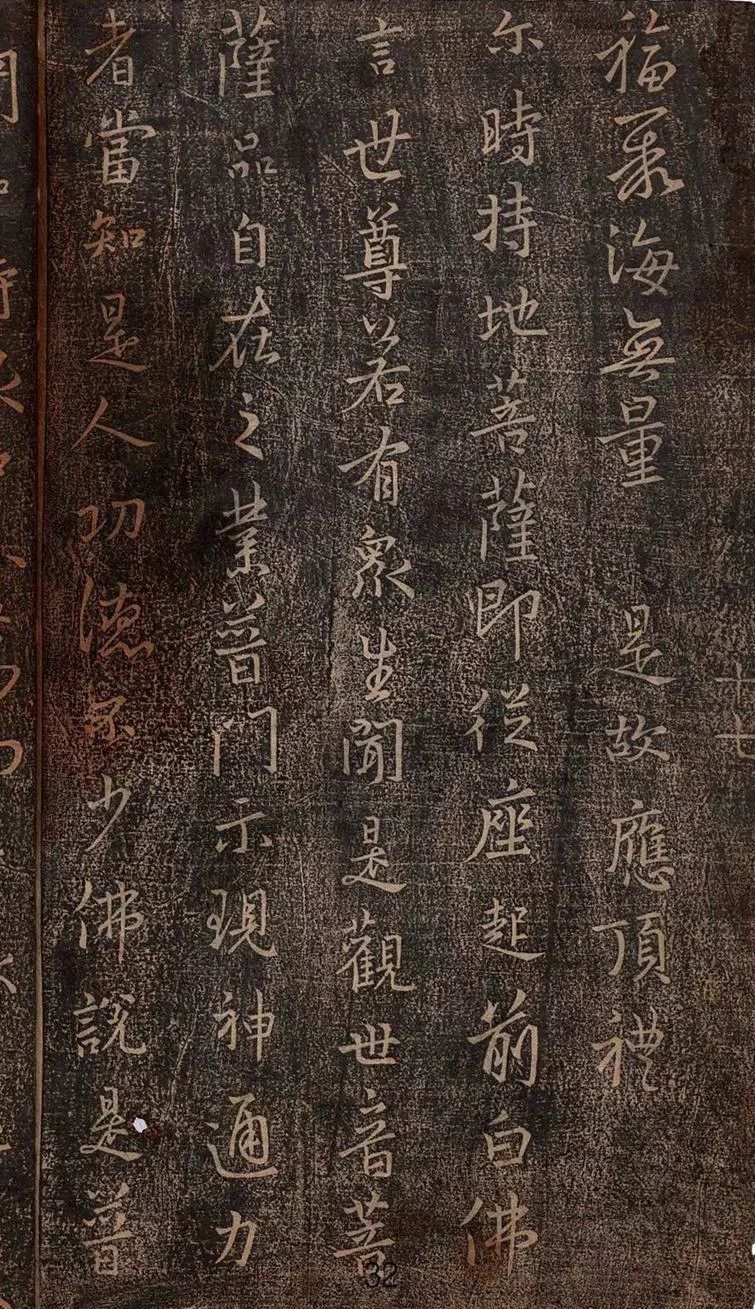 十七
福聚海無量 是故應頂禮
尒時持地菩薩即從座起前白佛
言世尊若有衆生聞是觀世音菩
薩品自在之業普門示現神通力
者當知是人功德不少佛說是普
32